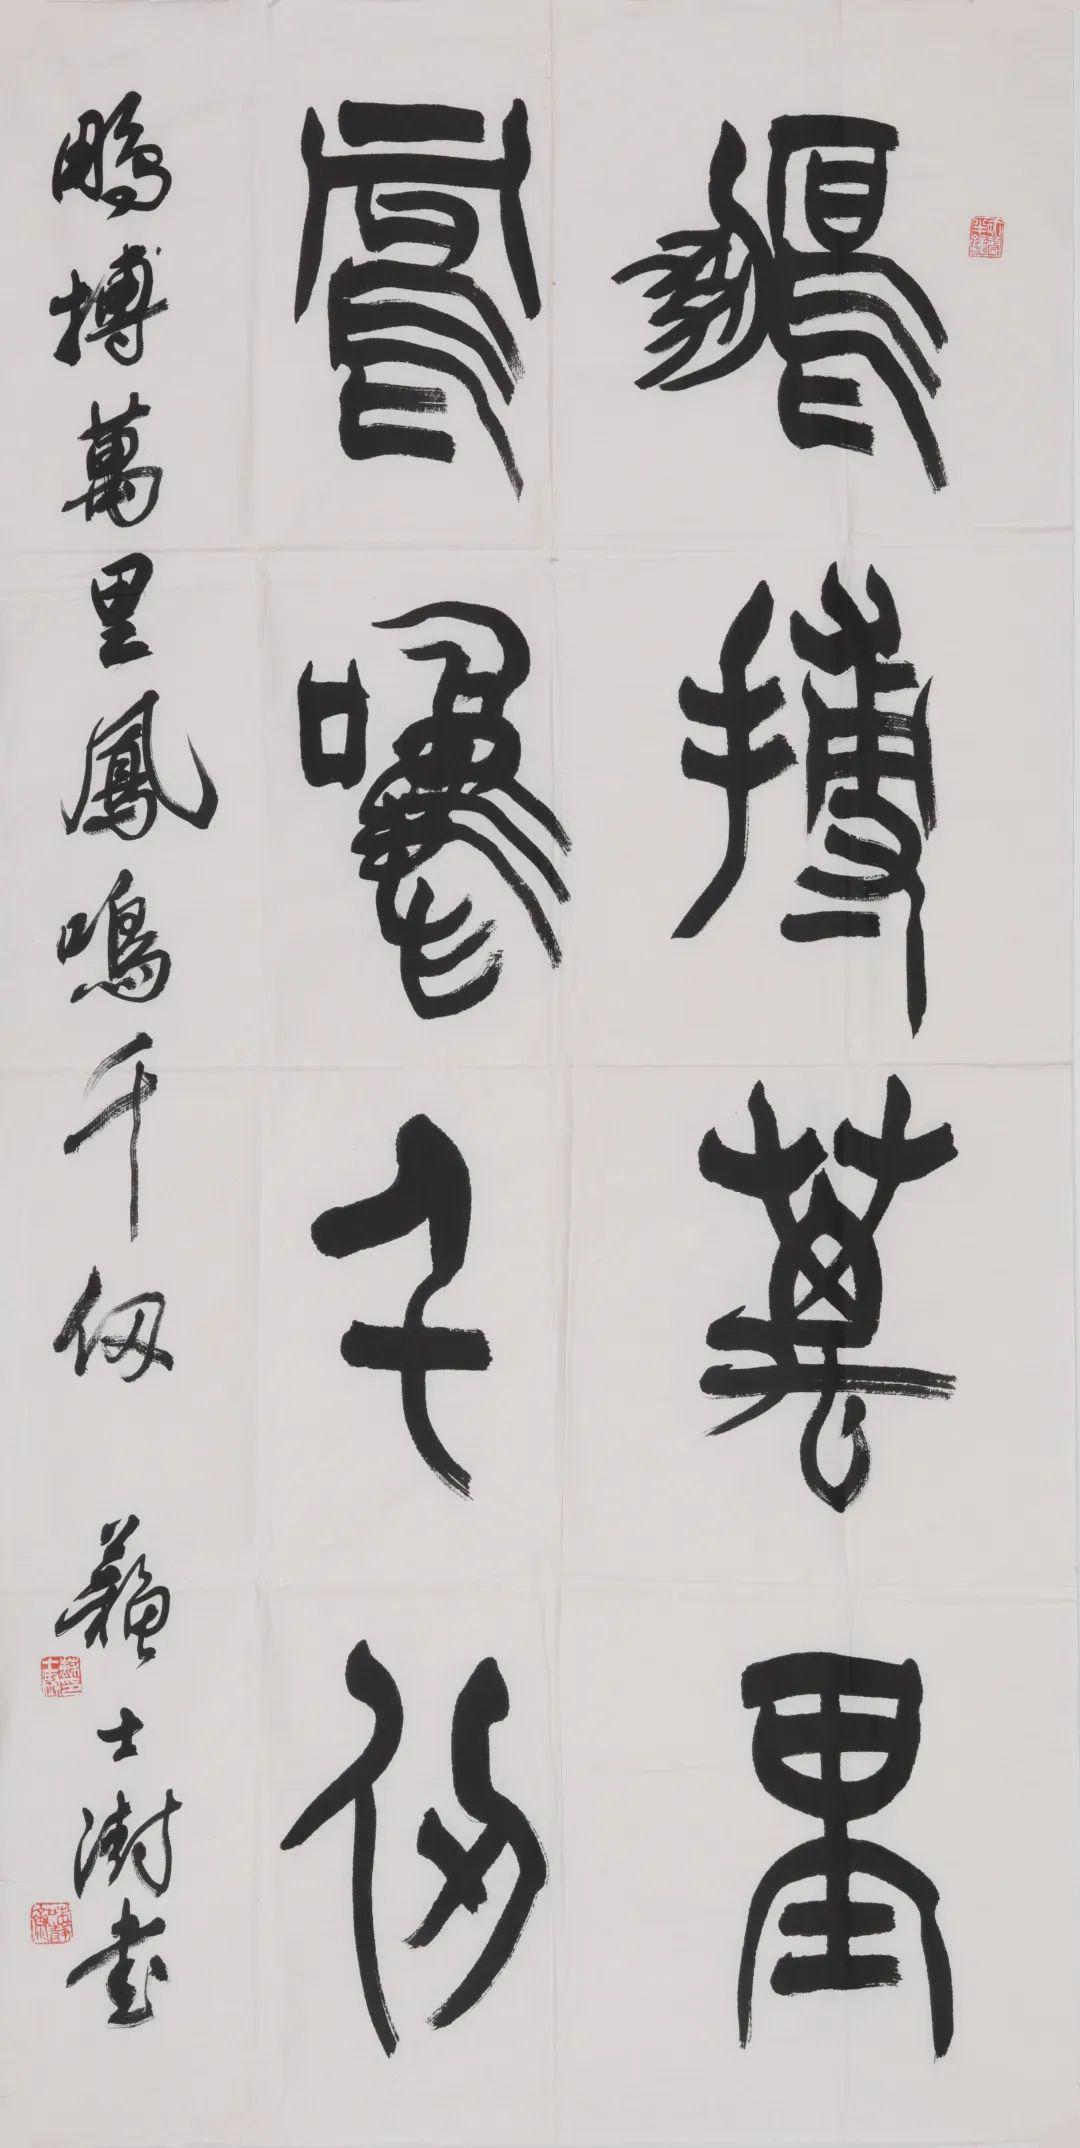 鵬搏萬里
鳳鳴千仞
鵬搏萬里鳳鳴千仞 蘇士澍書